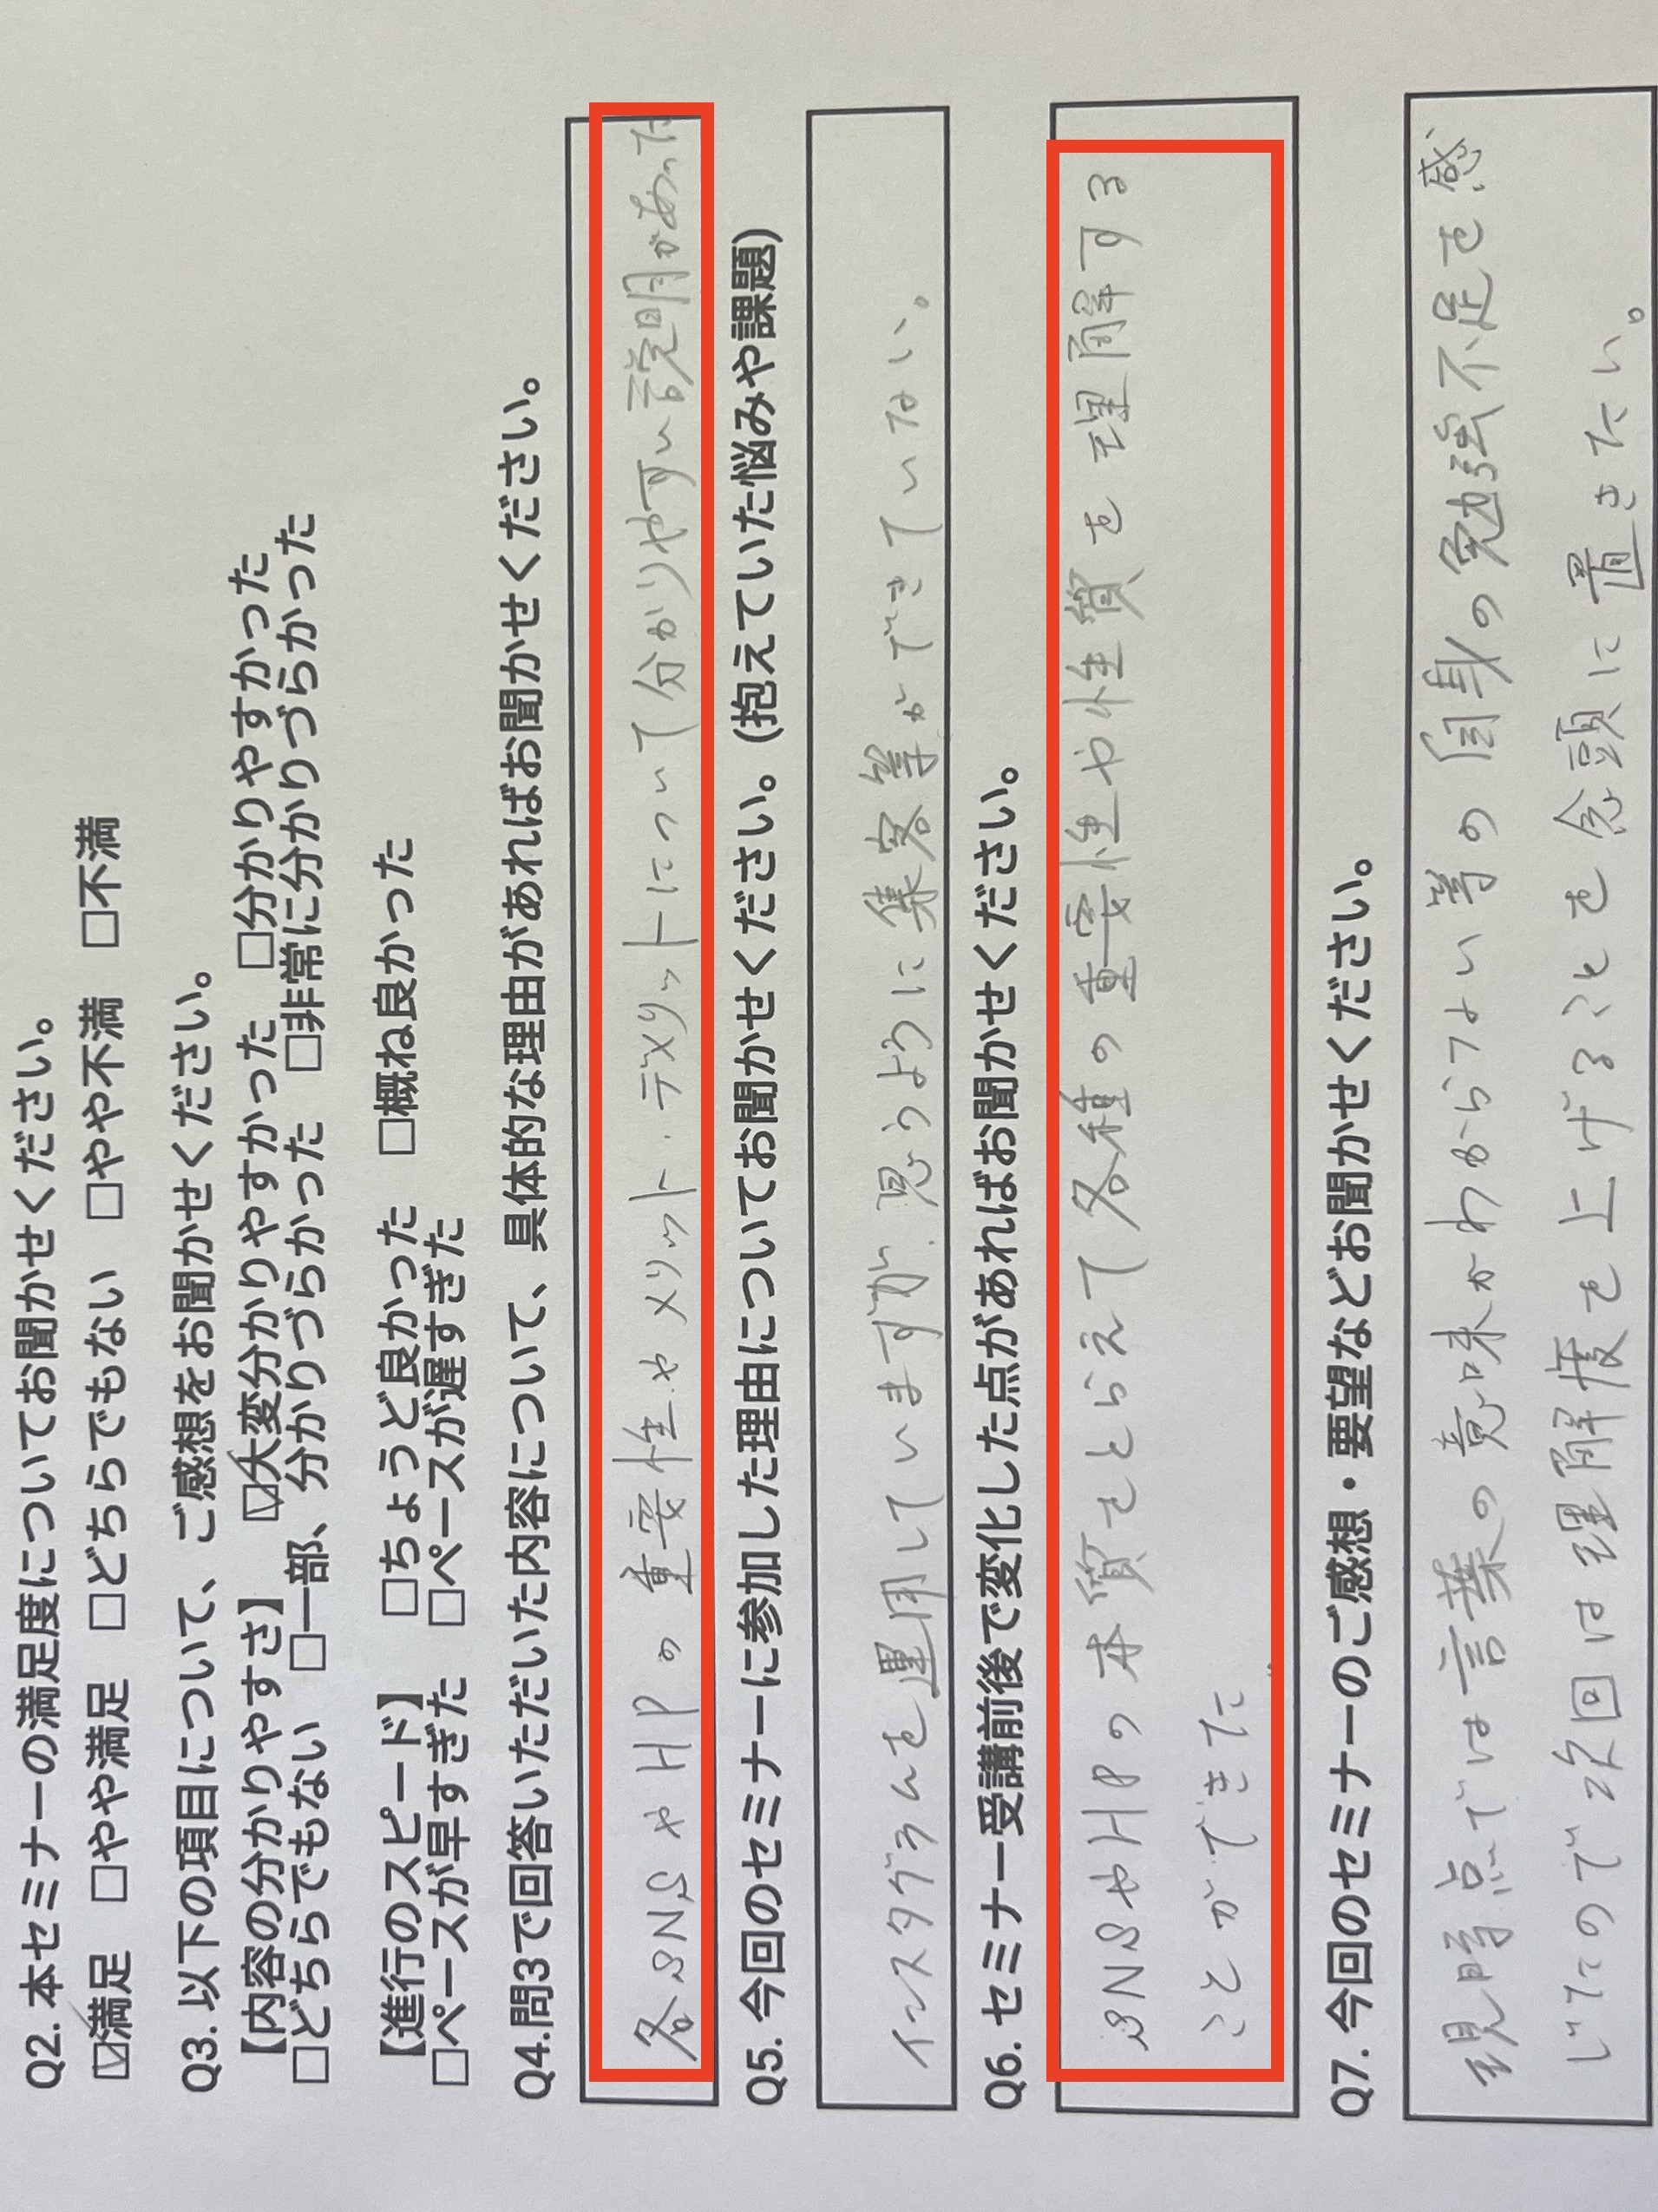 Q2. 本セミナーの満足度についてお聞かせください。
☑満足 □やや満足 □どちらでもない □やや不満 □不満
Q3. 以下の項目について、ご感想をお聞かせください。
【内容の分かりやすさ】 ☑大変分かりやすかった □分かりやすかった
□どちらでもない □一部、分かりづらかった □非常に分かりづらかった
【進行のスピード】 □ちょうど良かった □概ね良かった
□ペースが早すぎた □ペースが遅すぎた
Q4.問3で回答いただいた内容について、具体的な理由があればお聞かせください。
各SNSやHPの重要性やメリット・デメリットについて分かりやすい説明があった
Q5. 今回のセミナーに参加した理由についてお聞かせください。(抱えていた悩みや課題)
インスタグラムを運用していますが、思うように集客等ができていない。
Q6. セミナー受講前後で変化した点があればお聞かせください。
SNSやHPの本質をとらえて各種の重要性や性質を理解する
ことができた
Q7. 今回のセミナーのご感想・要望などお聞かせください。
現時点では言葉の意味がわからない等の自身の勉強不足を感
じたので次回は理解度を上げることを念頭に置きたい。